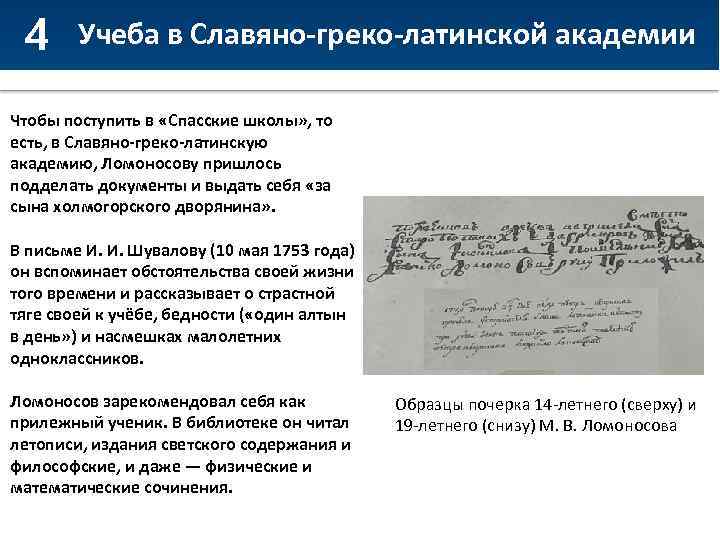 4 Учеба в Славяно-греко-латинской академии
Чтобы поступить в «Спасские школы», то
есть, в Славяно-греко-латинскую
академию, Ломоносову пришлось
подделать документы и выдать себя «за
сына холмогорского дворянина».
В письме И. И. Шувалову (10 мая 1753 года)
он вспоминает обстоятельства своей жизни
того времени и рассказывает о страстной
тяге своей к учёбе, бедности («один алтын
в день») и насмешках малолетних
одноклассников.
Ломоносов зарекомендовал себя как
прилежный ученик. В библиотеке он читал
летописи, издания светского содержания и
философские, и даже — физические и
математические сочинения.
Образцы почерка 14-летнего (сверху) и
19-летнего (снизу) М. В. Ломоносова